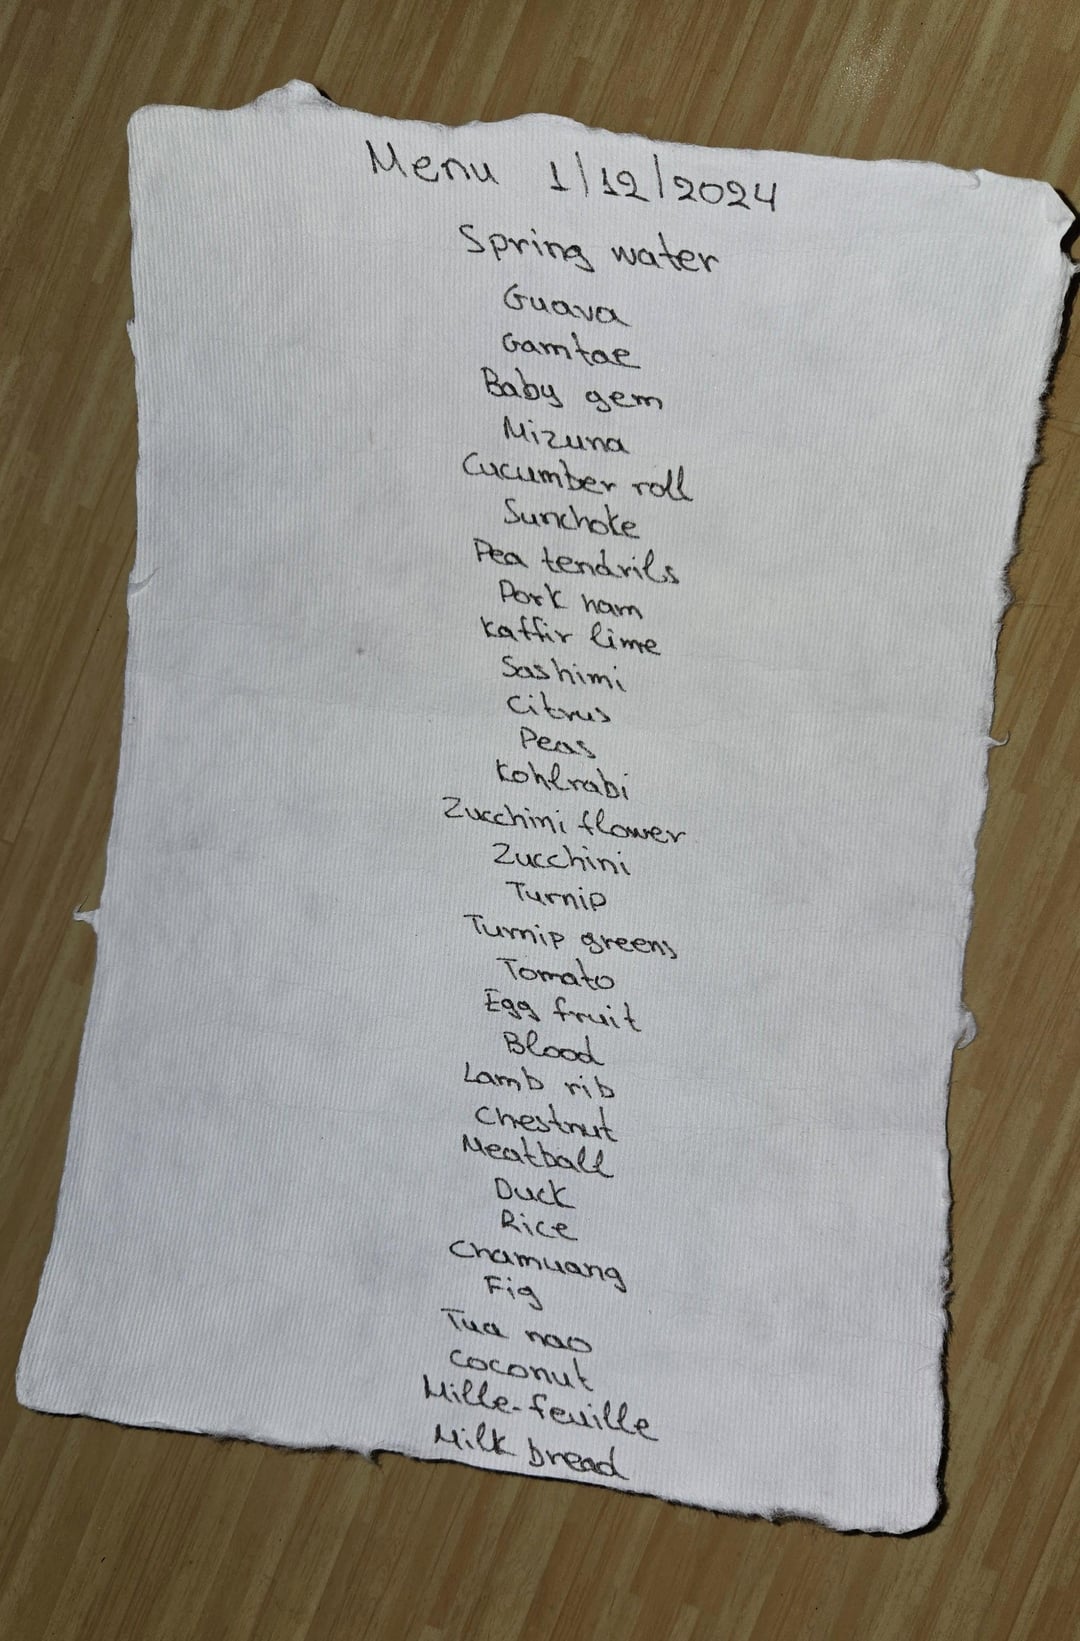 Menu 1/12/2024
Spring water
Guava
Gamtae
Baby gem
Mizuna
Cucumber roll
Sunchoke
Pea tendrils
Pork ham
Kaffir lime
Sashimi
Citrus
Peas
Kohlrabi
Zucchini flower
Zucchini
Turnip
Turnip greens
Tomato
Egg fruit
Blood
Lamb rib
Chestnut
Meatball
Duck
Rice
Chamuang
Fig
Tua nao
Coconut
Mille-feuille
Milk bread